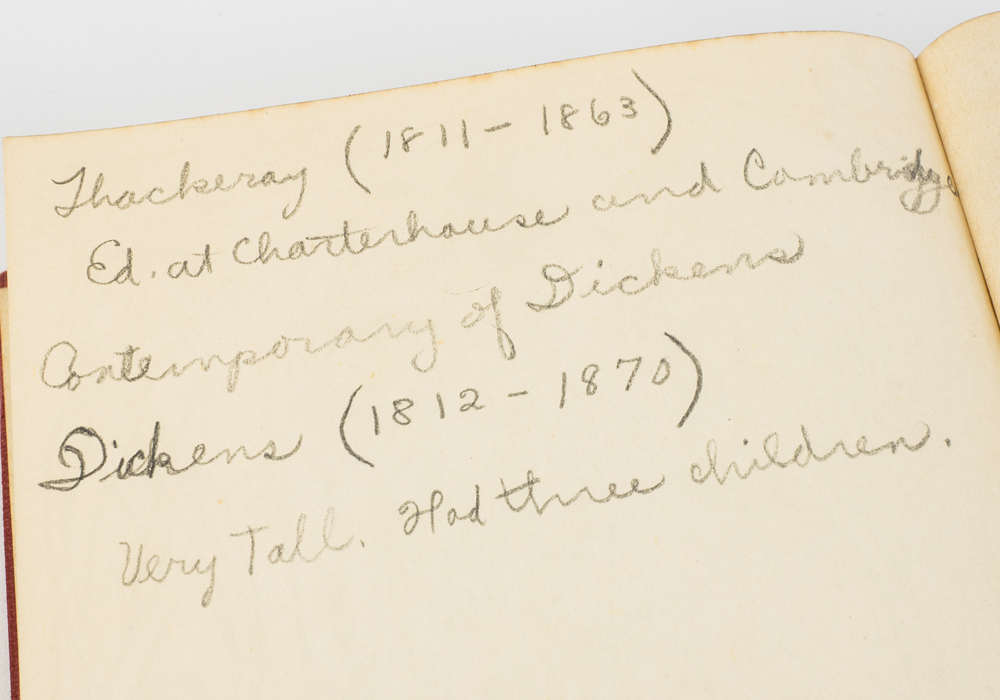 Thackeray (1811 - 1863)
Ed. at Charterhouse and Cambridge
Contemporary of Dickens
Dickens (1812 - 1870)
Very Tall. Had three children.